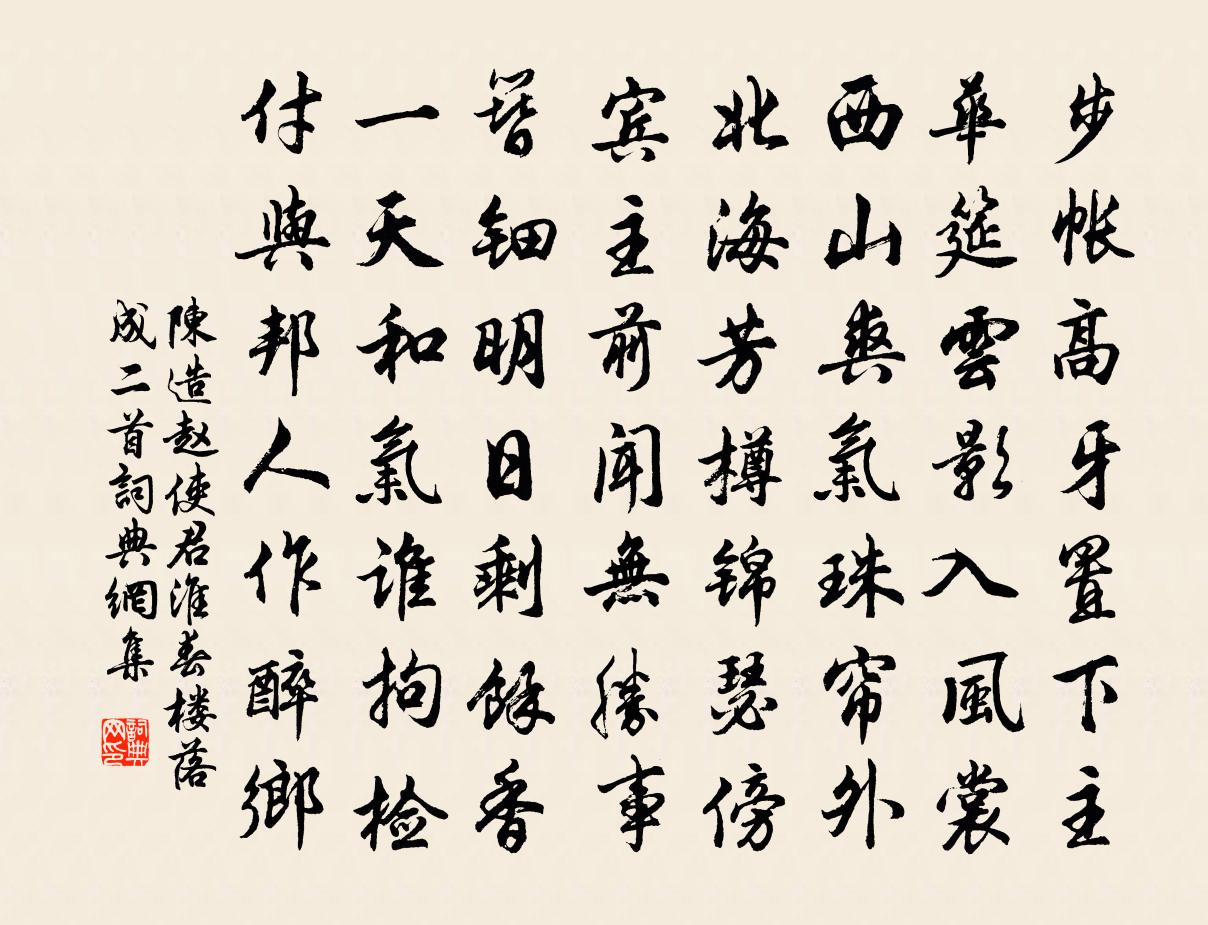 步帐高牙置下主
華筵雲影入風裳
西山爽氣珠帘外
北海芳樽锦瑟傍
宾主前闻無勝事
簪钿明日剩餘香
一天和氣谁拘检
付與邦人作醉鄉
陳造赵使君淮春楼落
成二首詞典網集
詞典网印